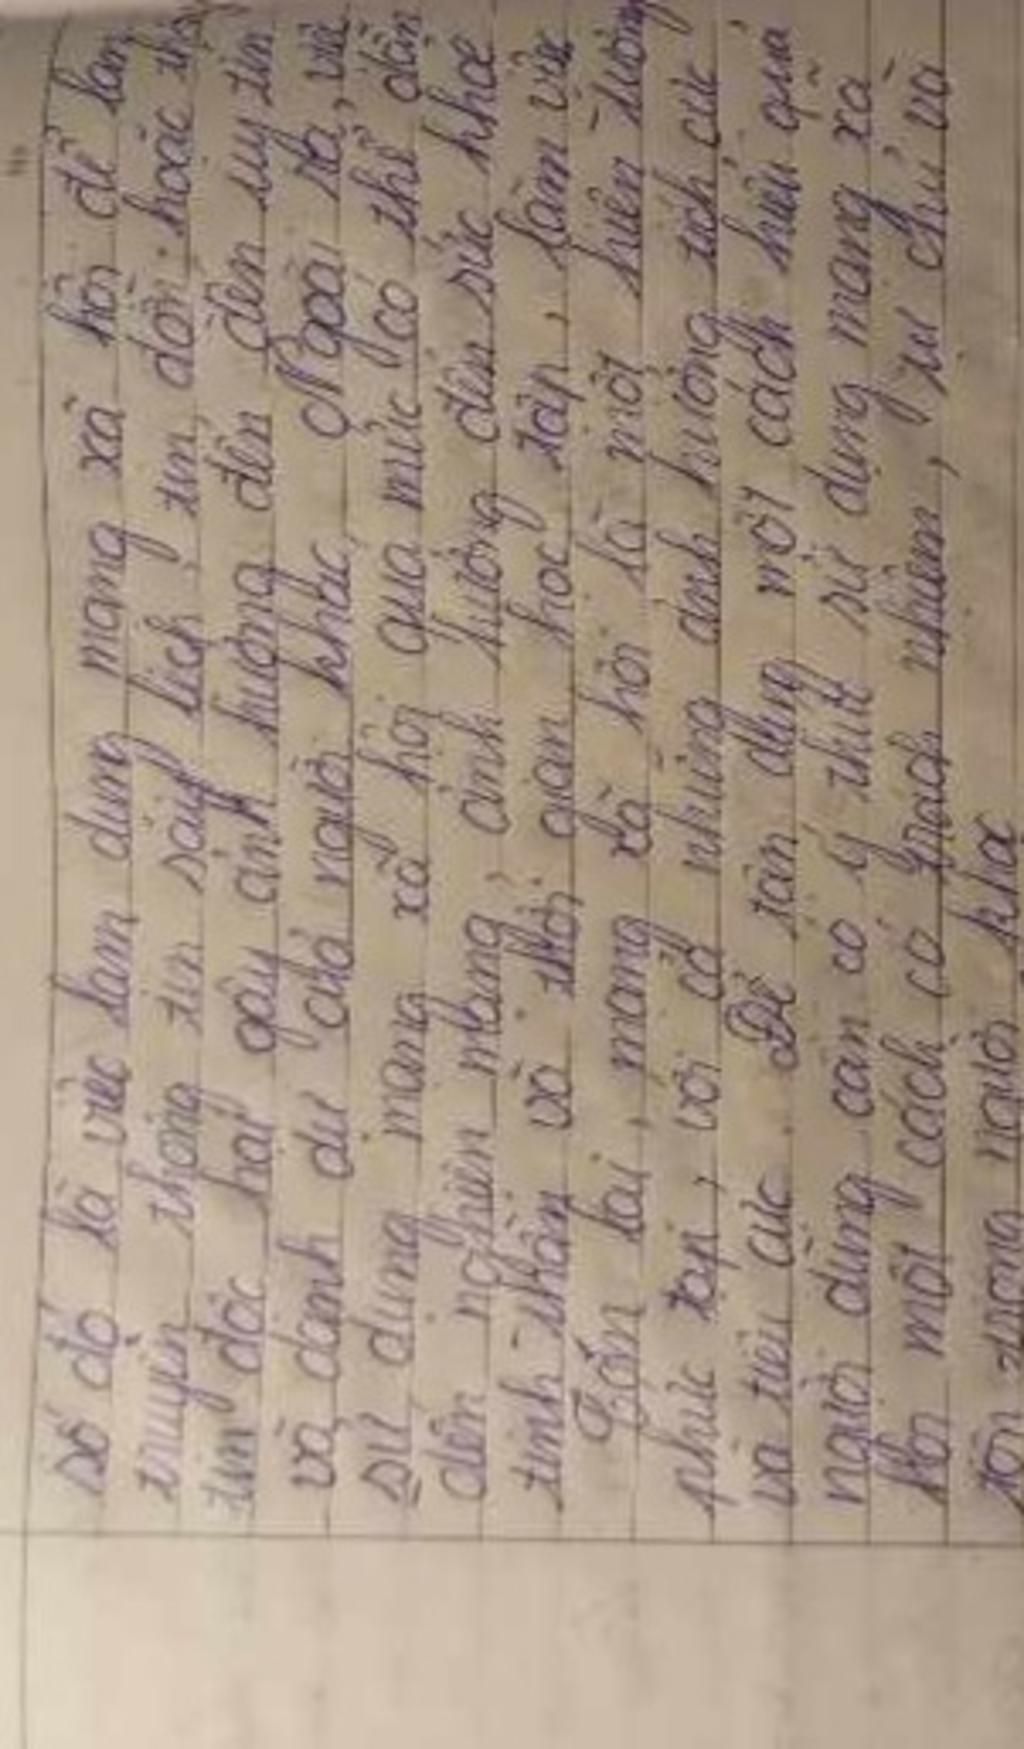 số đó là việc lạm dụng mạng xã hội để lan
truyền thông tin sai lệch, tin đồn hoặc thông
tin độc hại gây ảnh hưởng đến đến uy tín
và danh dự của người khác. Ngoài ra, việc
sử dụng mạng xã hội quá mức có thể dẫn
đến nghiện mạng, ảnh hưởng đến sức khoẻ
tinh thần và thời gian học tập, làm việc
Tóm lại, mạng xã hội là một hiện tượng
phức tạp, với cả những ảnh hưởng tích cực
và tiêu cực. Để tận dụng một cách hiệu quả
người dùng cần có ý thức sử dụng mạng xã
hội một cách có trách nhiệm, tự chủ và
tôn trọng người khác